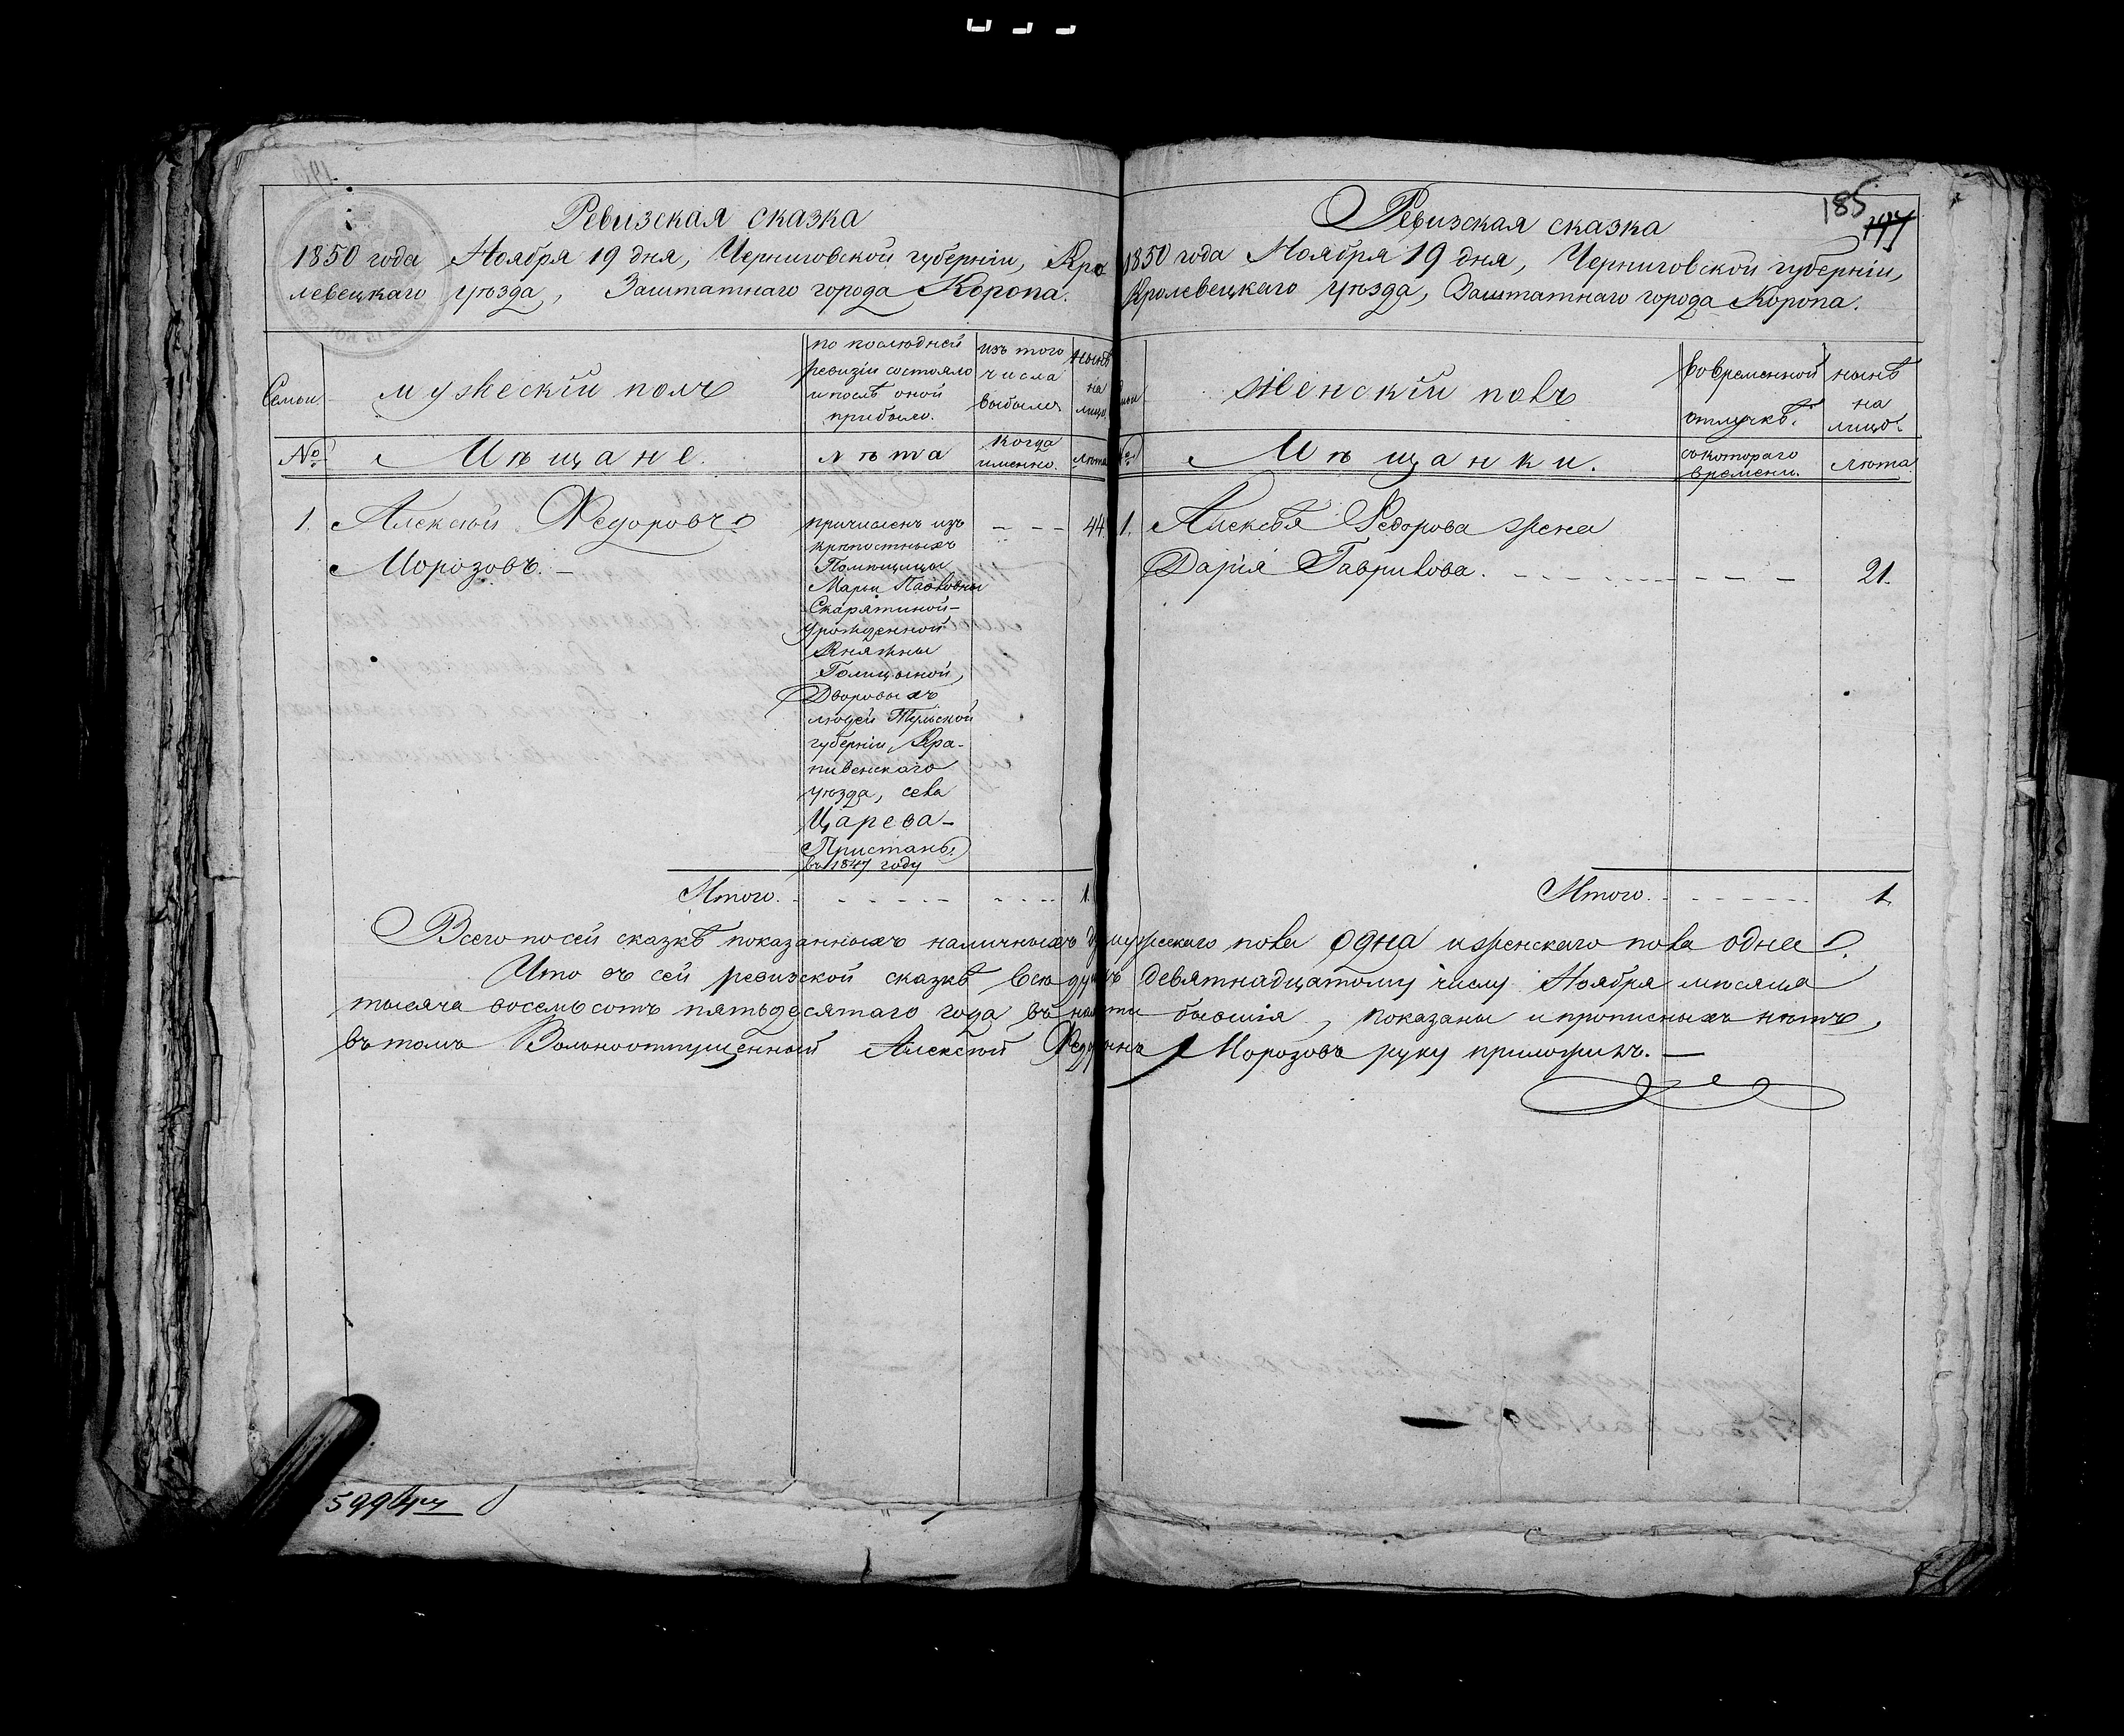 Ревизская сказка
1850 года Ноября 19 дня, Черниговской губерніи, Кро
левецкаго уѣзда, Заштатнаго города Коропа.
Семьи
мужескій полъ
по послѣдней
ревизіи состояло
и послѣ оной
прибыло.
изъ того
числа
выбыло
нынѣ
на
лицо
№
Мѣщане.
лѣта
когда
именно.
лѣта
1. Алексѣй Федоровъ
Морозовъ. —
причисленъ изъ
крѣпостныхъ
Помѣщицы
Марьи Павловны
Скарятиной —
урожденной
Княжны
Голицыной,
Дворовыхъ
людей Тульской
губерніи, Кра-
пивенскаго
уѣзда, села
Царева-
Пристань,
въ 1847 году
44
Итого. 1.
185
Ревизская сказка
1850 года Ноября 19 дня, Черниговской губерніи,
Кролевецкаго уѣзда, Заштатнаго города Коропа.
женскій полъ
во временной
отлучкѣ.
нынѣ
на
лицо
№
Мѣщанки.
съ котораго
времени.
лѣта
1. Алексѣя Федорова жена
Дарія Гаврилова. 21.
Итого. 1.
Всего по сей сказкѣ показанныхъ наличныхъ мужескаго пола одна и женскаго пола одна.
Что въ сей ревизской сказкѣ всѣ девятнадцатому числу Ноября мѣсяца
тысяча восемьсотъ пятьдесятаго года бывшія, показаны и прописныхъ нѣтъ,
въ томъ Вольноотпущенный Алексѣй Морозовъ руку приложилъ. —
599